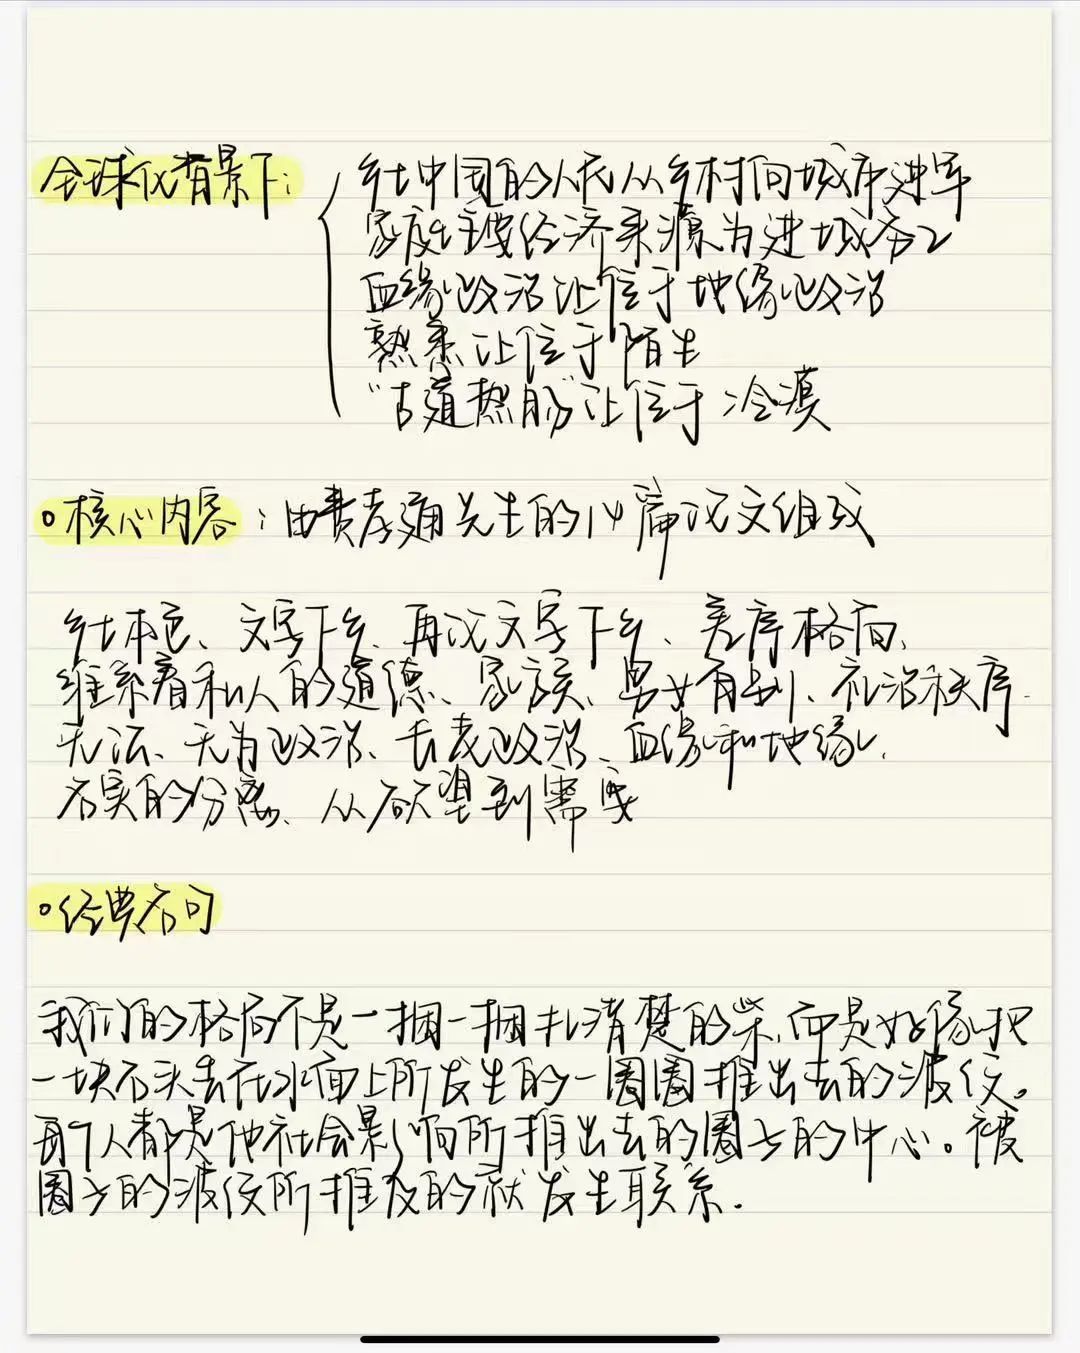 全球化背景下:
乡土中国的人民从乡村向城市进军
家庭主要经济来源为进城务工
血缘政治让位于地缘政治
熟悉让位于陌生
“古道热肠”让位于冷漠
核心内容:由费孝通先生的14篇论文组成
乡土本色、文字下乡、再论文字下乡、差序格局、
维系着私人的道德、家族、男女有别、礼治秩序、
无法、无为政治、长老政治、血缘和地缘、
名实的分离、从欲望到需要
经典名句
我们的格局不是一捆一捆扎清楚的柴,而是好像把
一块石头丢在水面上所发生的一圈圈推出去的波纹。
每个人都是他社会影响所推出去的圈子的中心。被
圈子的波纹所推及的就发生联系.